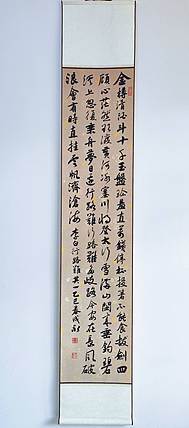 金樽清酒斗十千玉盤珍羞直萬錢停杯投箸不能食拔劍四
顧心茫然欲渡黃河冰塞川將登太行雪滿山閑來垂釣碧
溪上忽復乘舟夢日邊行路難行路難多歧路今安在長風破
浪會有時直掛雲帆濟滄海 李白行路難其一乙巳春